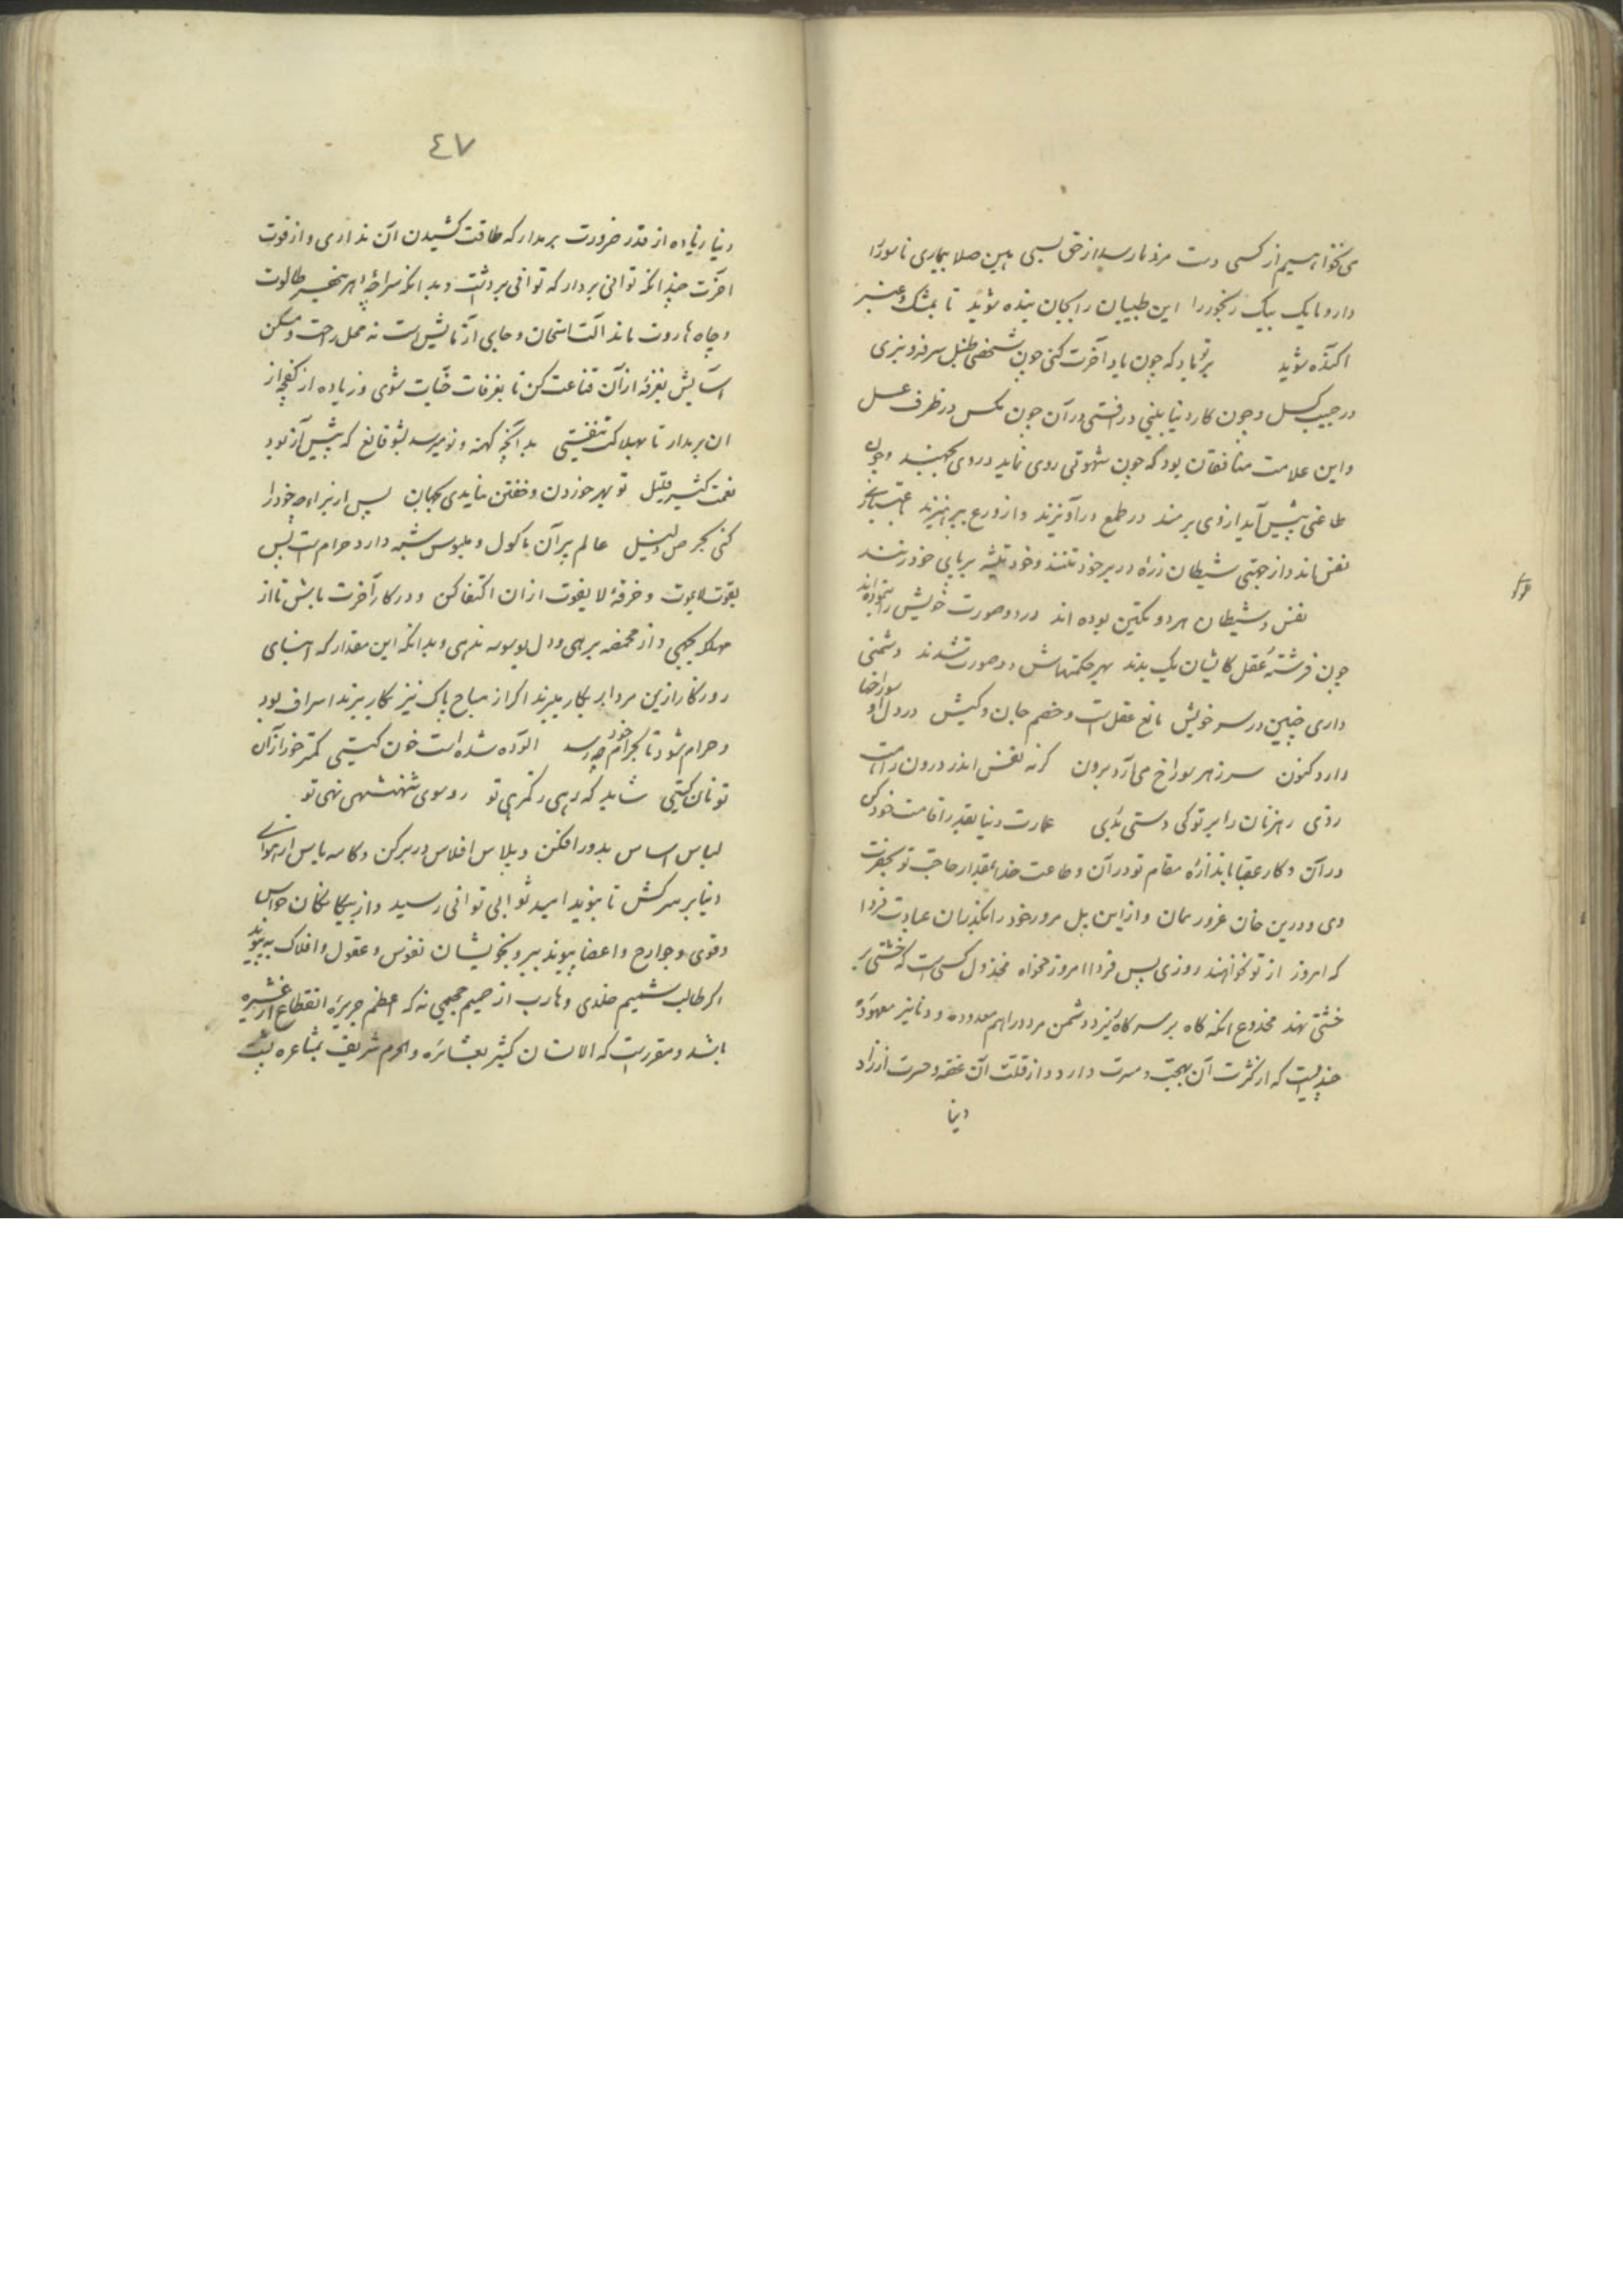 می نخواهیم از کسی دست مزد ما رسد از حق بسی هین صلا بیماری ناسور را
دارو ما یک بیک رنجور را این طبیبان را بجان بنده شوید تا بمشک و عنبر
آکنده شوید بر تو باد که چون یاد آخرت کنی چون شخصی طنبل سر فرو نبری
در جیب کسل و چون کار دنیا بینی در افتی در آن چون مکس در ظرف عسل
و این علامت منافقان بود که چون شهوتی روی نماید در وی بجهند و چون
طاعتی پیش آید از وی برمند در طمع در آویزند و از ورع بپرهیزند
نفس اند و از جهتی شیطان زره در بر خود تنند و خود تیشه بر پای خود زنند
نفس و شیطان هر دو یکتن بوده اند در دو صورت خویش را بنموده اند
چون فرشته عقل کایشان یک بدند بهر حکمتهاش دو صورت شدند دشمنی
داری چنین در سر خویش مانع عقل است و خصم جان و کیش در دل او سوراخها
دارد کنون سر ز هر سوراخ می آرد برون گرنه نفس اندر درون راهت
زدی رهزنان را بر تو کی دستی بدی عمارت دنیا بقدر اقامت خود کن
در آن و کار عقبا باندازه مقام تو در آن و طاعت خدا بمقدار حاجت تو بحضرت
وی و درین خان غرور ممان و ازین پل مرور خود را بگذران عبادت فردا
که امروز از تو نخواهند روزی پس فردا امروز مخواه مخذول کسی است که خشتی بر
خشتی نهد مخدوع آنکه کاه بر سر کاه ریزد دشمن مرد دراهم معدوده و دنانیر معهوده
چندیست که از کثرت آن بهجت و مسرت دارد و از قلت آن غصه و حسرت
دنیا
٤٧
دنیا زیاده از قدر ضرورت برمدار که طاقت کشیدن آن نداری و از قوت
آخرت چندانکه توانی بردار که توانی برداشت و بدانکه سراچه طالوت
و چاه هاروت ماند آلت امتحان و جای آزمایش است نه محل راحت و مسکن
آسایش بغرفه از آن قناعت کن تا بغرفات جنات شوی و زیاده از کفچه از
آن برمدار تا بهلاکت نیفتی بدانچه کهنه و نو میرسد بشو قانع که پیش آز بود
نعمت کثیر قلیل تو بهر خوردن و خفتن نیامدی بجهان پس از برای چه خود را
کنی بحرص ذلیل عالم بر آن مأکول و ملبوس شبهه دارد حرام است پس
بقوت لایموت و خرقه لایفوت از آن اکتفا کن و در کار آخرت باش تا از
بجهی و از مخمصه برهی و دل بوسوسه ندهی و بدانکه این مقدار که ابنای
روزگار ازین مردار بکار میبرند اگر از مباح پاک نیز بکار برند اسراف بود
و حرام شود تا بحرام خود چه رسد آلوده شده است خون گیتی کمتر خور از آن
تو نان گیتی شاید که رهی ز گمرهی تو رو سوی شهنشهی نهی تو
لباس اساس بدور افکن و پلاس افلاس در بر کن و کاسه یأس از هوای
دنیا بر سر کش تا بنوید امید ثوابی توانی رسید و از بیگانگان حواس
و قوی و جوارح و اعضا پیوند ببر و بخویشان نفوس و عقول و افلاک بپیوند
اگر طالب شمیم خلدی و هارب از حمیم جحیمی نه که اعظم جریره انقطاع از عشیره
باشد و مقرر است که الانسان کثیر بعشائره و الحرم شریف بمشاعره